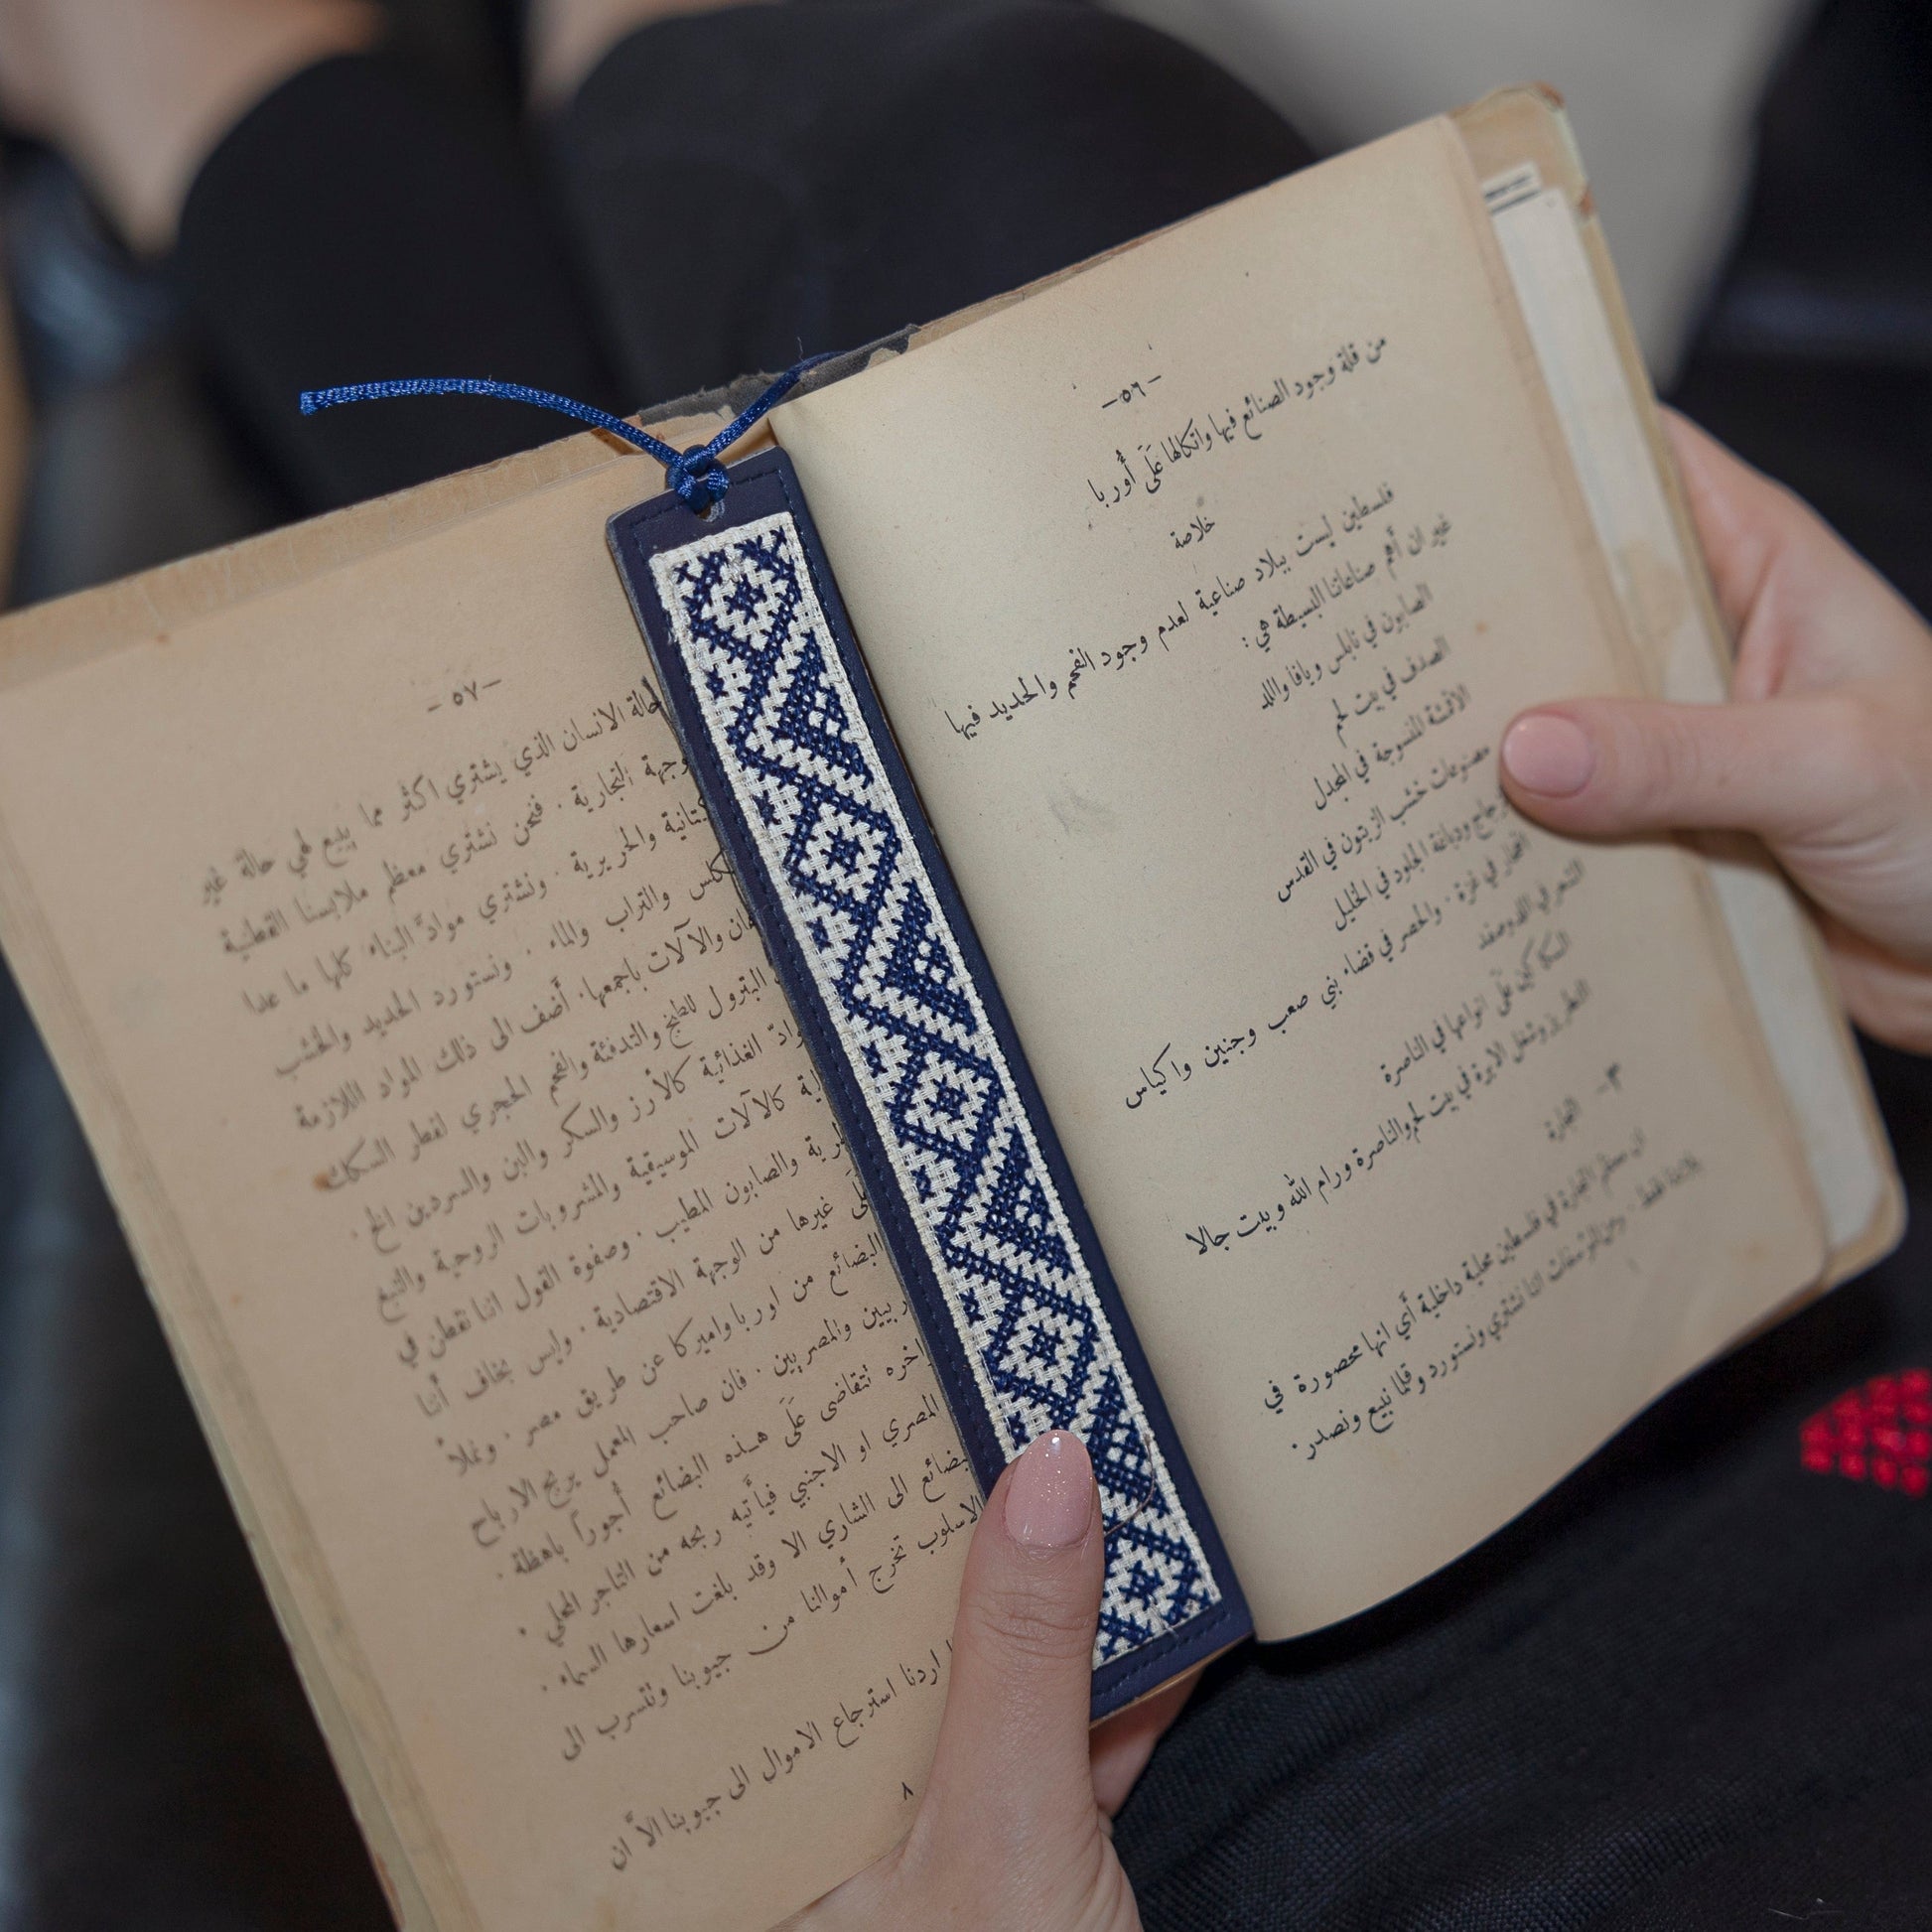 -٥٦-
من قلة وجود الصنائع فيها واتكالها عَلَى أُوربا
خلاصة
فلسطين ليست ببلاد صناعية لعدم وجود الفحم والحديد فيها
غير ان أهم صناعاتنا البسيطة هي :
الصابون في نابلس ويافا واللد
الصدف في بيت لحم
الاقشة المنسوجة في المجدل
مصنوعات خشب الزيتون في القدس
الزجاج ودباغة الجلود في الخليل
الفخار في غزة . والحصر في قضاء بني صعب وجنين واكياس
الشعر في اللد وصفد
السكاكين عَلَى انواعها في الناصرة
التطريز وشغل الابرة في بيت لحم والناصرة ورام الله وبيت جالا
٣- التجارة
ان معظم التجارة في فلسطين محلية داخلية أي انها محصورة في
بلادنا فقط . ومن المؤسفات اننا نشتري ونستورد وقلما نبيع ونصدر .
-٥٧-
حالة الانسان الذي يشتري اكثر مما يبيع لهي حالة غير
وجهة التجارية . فنحن نشتري معظم ملابسنا القطنية
والحريرية . ونشتري موادّ البناء كلها ما عدا
والتراب والماء . ونستورد الحديد والخشب
والآلات باجمعها . أضف الى ذلك المواد اللازمة
البترول للطبخ والتدفئة والفحم الحجري لقطر السكك
الغذائية كالأرز والسكر والبن والسردين الخ .
كالآلات الموسيقية والمشروبات الروحية والتبغ
والصابون المطيب . وصفوة القول اننا نقطن في
غيرها من الوجهة الاقتصادية . وليس بخاف أننا
البضائع من اوربا واميركا عن طريق مصر . وعملاً
والمصريين . فان صاحب المعمل يربح الارباح
تتقاضى عَلَى هذه البضائع أُجوراً باهظة .
المصري او الاجنبي فيأتيه ربحه من التاجر المحلي .
الى الشاري الا وقد بلغت اسعارها السماء .
الاسلوب تخرج أموالنا من جيوبنا وتتسرب الى
اردنا استرجاع الاموال الى جيوبنا الاَّ ان
٨